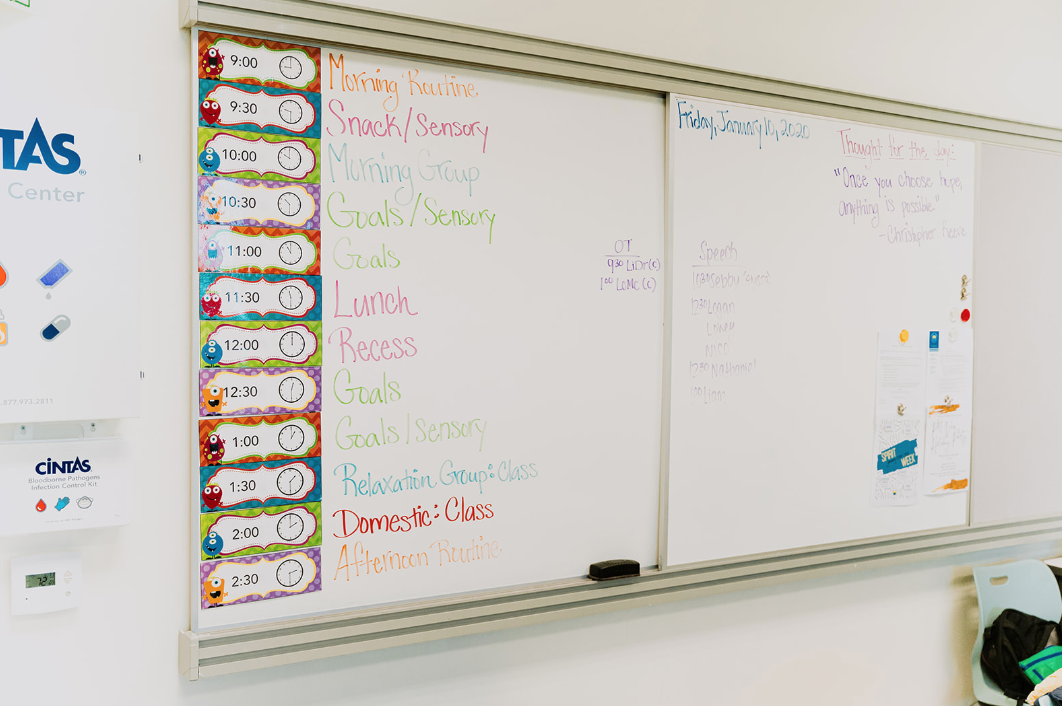 TAS
Center
877.973.2811
CINTAS
Bloodborne Pathogens
Infection Control Kit
72
9:00 Morning Routine.
9:30 Snack/Sensory
10:00 Morning Group
10:30 Goals/Sensory
11:00 Goals
11:30 Lunch
12:00 Recess
12:30 Goals
1:00 Goals/Sensory
1:30 Relaxation Group: Class
2:00 Domestic: Class
2:30 Afternoon Routine
OT
9:30 LiDr(c)
1:00 LoMc(c)
Friday, January 10, 2020
Thought for the day:
"Once you choose hope,
anything is possible."
-Christopher Reeve
Speech
12:30 Nathaniel
SPIRIT
WEEK